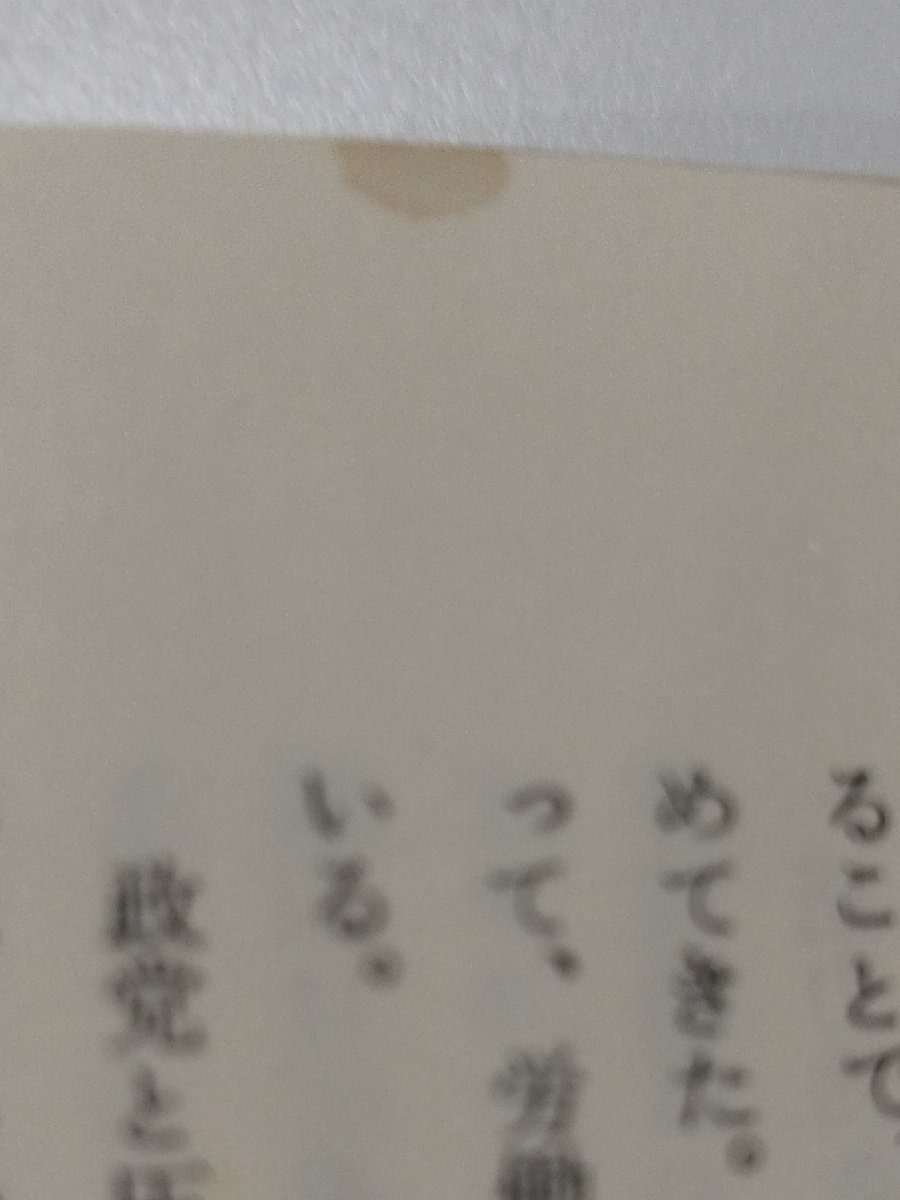 ることで、
めてきた。
って、労働
いる。
政党と圧